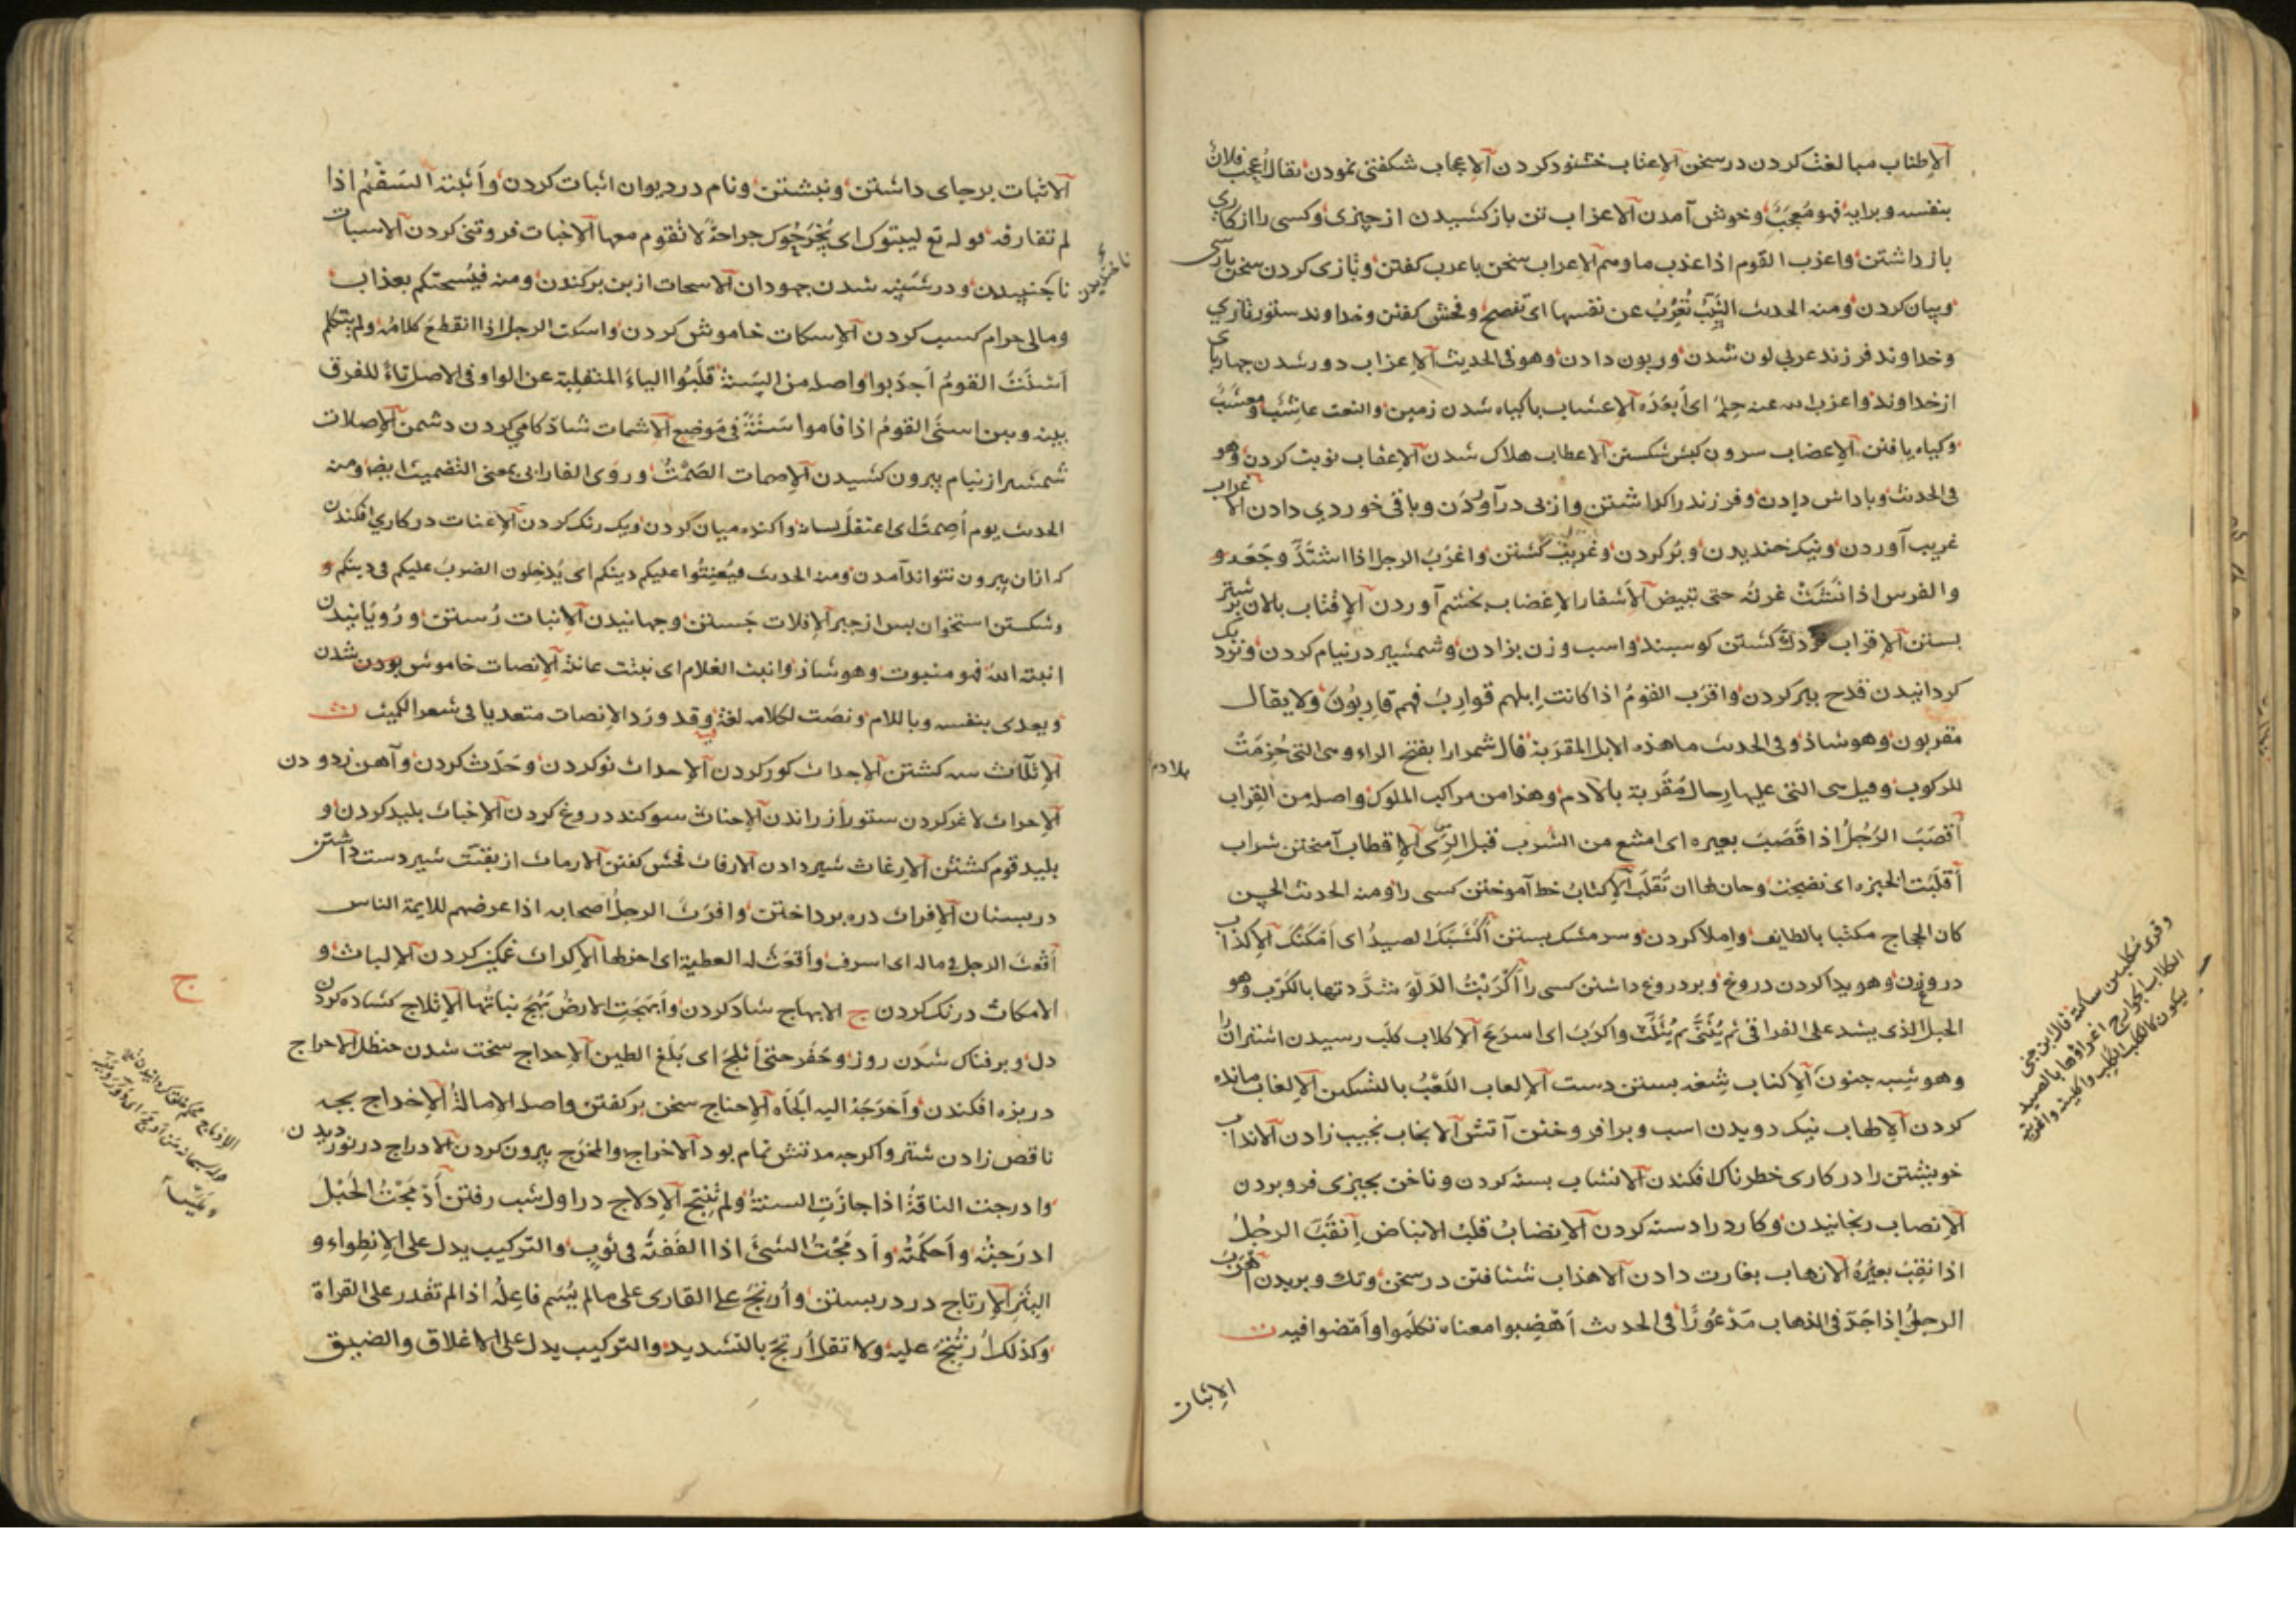 الإطناب مبالغت کردن در سخن الإعتاب خشنود کردن الإعجاب شکفتی نمودن یقال اُعجِبَ فلانٌ
بنفسه وبرایه فهو مُعجَبٌ وخوش آمدن الاعزاب تن باز کشیدن از چیزی وکسی را از کاری
باز داشتن واعذب القوم اذا عذب ماوهم الاعراب سخن باعرب کفتن وتازی کردن سخن پارسی
وبیان کردن ومنه الحدیث الثیب تُعرِبُ عن نفسها ای تفصح وفحش کفتن وخداوند ستور تازی
وخداوند فرزند عربی لون شدن وربون دادن وهو فی الحدیث الإعزاب دور شدن چهارپای
از خداوند واعزب الله عنه حِلمَه ای أبعَدَه الإعشاب باکیاه شدن زمین والنعت عاشِبٌ ومعشبٌ
وکیاه یافتن الإعضاب سرون کبش شکستن الاعطاب هلاک شدن الإعقاب نوبت کردن وهو
فی الحدیث وباداش دادن وفرزند را کذاشتن واز پی درآوردن وباقی خوردی دادن الاغراب
غریب آوردن ونیک خندیدن وپُر کردن وغریب کشتن واغرَبَ الرجل اذا اشتدّ وجعه و
والفرس اذا فَشَت غرته حتی تبیض الأشفار الإغضاب بخشم آوردن الإقتاب پالان بر شتر
بستن الإقراب نزدیک کشتن کوسبند واسب وزن بزادن وشمشیر در نیام کردن ونزدیک
کردانیدن قدح ببر کردن واقرَب القومُ اذا کانت اِبلهم قوارِبَ فهم قارِبُونَ ولا یقال
مقربون وهو شاذ وفی الحدیث ما هذه الابل المقرَبة قال شمر ارا بفتح الراء وهی التی حُزِمَت
للرکوب وقیل هی التی علیها رِحال مُقَربة بالأدم وهذا من مراکب الملوک واصله من القِراب
أقصَبَ الرَجُلُ اذا قَصَبَ بعیره ای امتنع من الشرب قبل الرِّی الإقطاب آمیختن شراب
أقلَبَت الخبزه ای نضجت وحان لها ان تُقلَبَ الإکتابُ خط آموختن کسی را ومنه الحدیث الحسن
کان الحجاج مکتبا بالطایف واملا کردن وسر مشک بستن أکثَبَکَ الصیدُ ای أمکَنَکَ الإکذاب
دروغزن وهویدا کردن دروغ وبر دروغ داشتن کسی را أکرَبتُ الدَلوَ شدَّدتها بالکَرَب وهو
الحبل الذی یشد علی العراقی ثم یُثَنَّی ثم یُثَلَّث واکرَبَ ای اسرَعَ الإکلاب کلَب رسیدن اشتران را
وهو شِبه جنون الإکناب شغه بستن دست الإلعاب اللَعبُ بالتسکین الإلغاب مانده
کردن الإلهاب نیک دویدن اسب وبر افروختن آتش الانجاب نجیب زادن الانداب
خویشتن را در کاری خطرناک افکندن الانشاب بسته کردن وناخن بچیزی فرو بردن
الإنصاب رنجانیدن وکارد را دسته کردن الإنضابُ قلبُ الانباض اِنقَبَ الرجُلُ
اذا نقِبَ بعیرُهُ الإنهاب بغارت دادن الاهذاب شتافتن در سخن وتک وپریدن أهرَبَ
الرجلُ إذا جَدّ فی الذهاب مَذعُورًا فی الحدیث أهضِبوا معناه تکلموا وأمضوا فیه ت
الإثبات
بالادم
وقری مُکلِبین ساکنة قال ابن جنی
الکلاب الجوارح اغراؤها بالصید
الاثبات برجای داشتن ونبشتن ونام در دیوان اثبات کردن وأثبته السقم اذا
لم تفارقه قوله تع لیثبتوک ای یُجَرِّحُوک جراحة لا تقوم معها الإخبات فروتنی کردن الاسبات
ناجنبیدن ودر شنبه شدن جهودان الاسحات از بن برکندن ومنه فیُسحتکم بعذاب
ومالی حرام کسب کردن الإسکات خاموش کردن واسکت الرجل اذا انقطع کلامُه ولم یتکلم
أسنَتَ القومُ أجدَبوا واصله من السَنة قلَبُوا الیاءَ المنقلبة عن الواو فی الاصل تاءً للفرق
بینه وبین اسنَی القومُ اذا قاموا سَنَةً فی مَوضِع الاشمات شادکامی کردن دشمن الإصلات
شمشیر از نیام بیرون کشیدن الإصمات الصَمتُ وروی الفارابی بمعنی التصمیت ایضا ومنه
الحدیث یوم أصمِتَ ای اعتقل لسانه واکنده میان کردن ویک رنک کردن الإعنات در کاری افکندن
که ازان بیرون نتواند آمدن ومنه الحدیث فیُعنِتُوا علیکم دینکم ای یُدخِلون الضررَ علیکم فی دینکم و
وشکستن استخوان پس از جبر الإفلات جَستن وجهانیدن الإنبات رُستن ورُویانیدن
انبته الله فهو منبوت وهو شاذ وانبت الغلام ای نبتت عانته الإنصات خاموش بودن شدن
ویعدی بنفسه وباللام ونصَت لکلامه لغة وقد وَرَد الإنصات متعدیا فی شعر الکمیت ث
الإثلاث سه کشتن الإجداث کور کردن الإحداث نو کردن وحَدَث کردن وآهن زدودن
الإحراث لاغر کردن ستور از راندن الإحناث سوکند دروغ کردن الإخباث پلید کردن و
پلید قوم کشتن الإرغاث شیر دادن الارفاث فحش کفتن الارماث از بقیّت شیر دست داشتن
در پستان الإفراث دره پرداختن وافرَثَ الرجلُ اصحابه اذا عرضهم للایمة الناس
أقعَثَ الرجل فی ماله ای اسرف وأقعَثَ له العطیة ای اجزلها الإکراث غمکین کردن الإلباث و
الامکاث درنک کردن ج الابهاج شاد کردن وأبهَجَتِ الارضُ بَهُجَ نباتُها الإثلاج کشاده کردن
دل وبرفناک شدن روز وحَفَر حتی أثلَجَ ای بَلَغَ الطین الإحداج سخت شدن حنظل الاحراج
در بزه افکندن وأحرَجَهُ الیه ألجَأه الإحناج سخن برکفتن واصله الإمالةُ الإخداج بچه
ناقص زادن شتر واکرچه مدتش تمام بود الاخراج والمَخرَج بیرون کردن الادراج در نوردیدن
وادرجت الناقةُ اذا جازَتِ السنةُ ولم تُنتَج الإدلاج در اول شب رفتن أدمَجتُ الحَبلَ
ادرَجتُه وأحکَمتُه وأدمَجتُ الشیَٔ اذا الفَفتَه فی ثوبٍ والترکیب یدل علی الإنطواء و
السَتر الإرتاج در در بستن وأُرتِجَ علی القاری علی مالم یُسَم فاعِلُه اذا لم تقدر علی القراة
وکذلک اُرتُتِجَ علیه ولا تقل اُرتجّ بالتشدید والترکیب یدل علی الاغلاق والضیق
ج